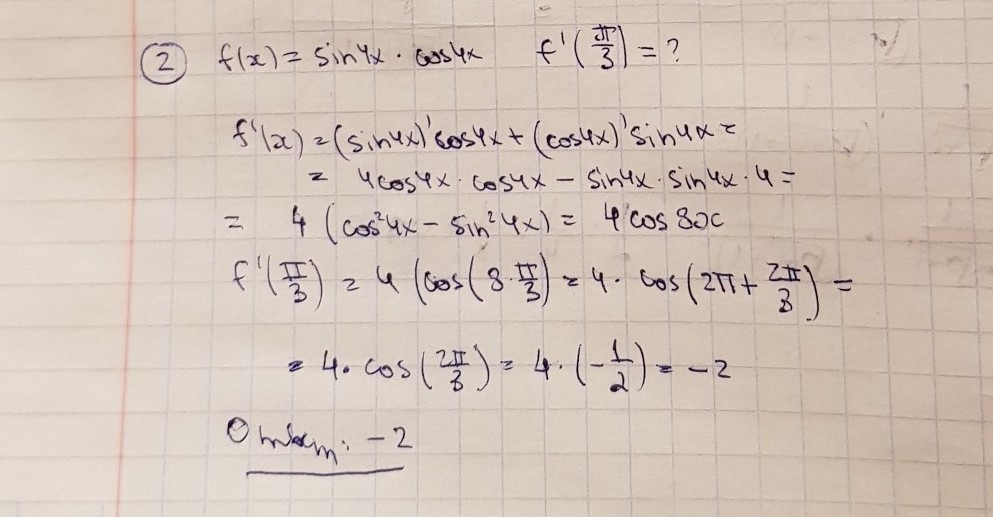 ② f(x) = sin4x · cos4x f'(π/3) = ?
f'(x) = (sin4x)'cos4x + (cos4x)'sin4x =
= 4cos4x · cos4x - sin4x · sin4x · 4 =
= 4 (cos²4x - sin²4x) = 4 cos 8x
f'(π/3) = 4 (cos(8·π/3) = 4 · cos(2π + 2π/3) =
= 4 · cos(2π/3) = 4 · (-1/2) = -2
Ответ: -2